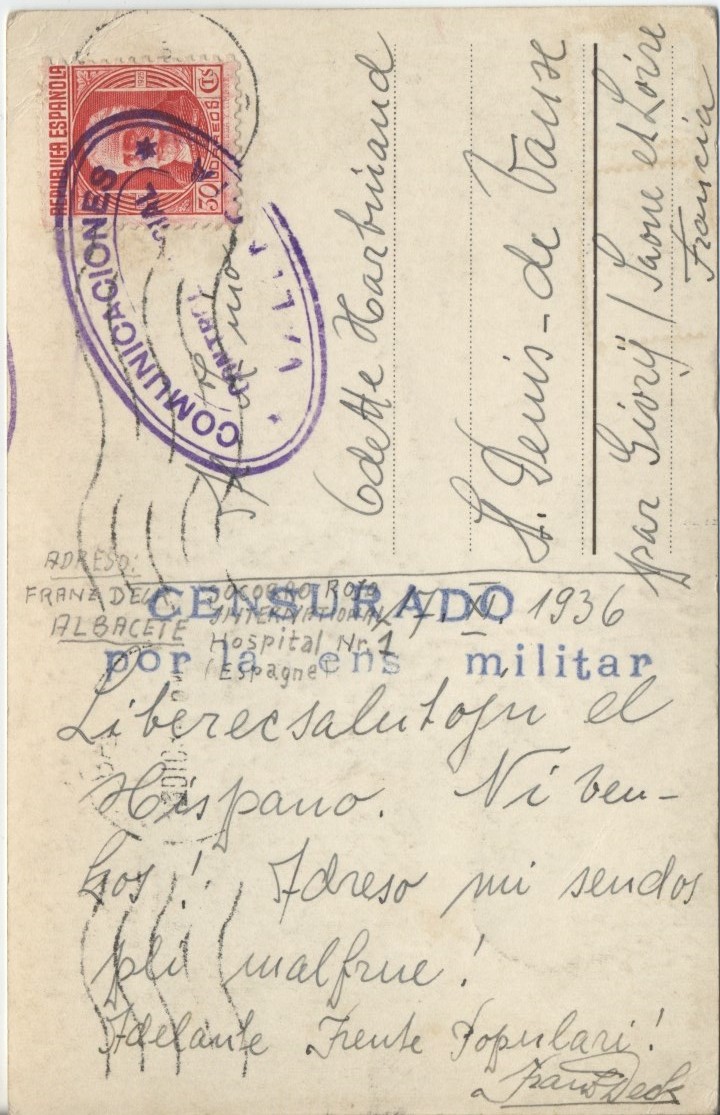 REPUBLICA ESPAÑOLA
30 CTS
COMUNICACIONES
Odette Harbuiaud
St. Denis-de Vaux
par Givry / Saone et Loire
Francia
ADRESO:
FRANZ DECK
ALBACETE
SOCORRO ROJO
INTERNATIONAL
Hospital Nr. 1
(Espagne)
17. XI. 1936
CENSURADO
por la ens militar
Liberecsalutojn el
Hispano. Ni ven-
kos! Adreso mi sendos
pli malfrue!
Adelante Frente Populari!
Franz Deck